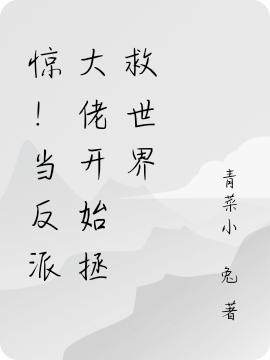 惊！当反派
大佬开始拯
救世界
青菜小兔著